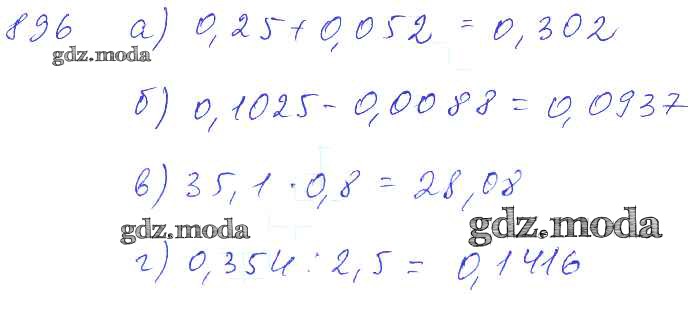 896 а) 0,25+0,052 = 0,302
gdz.moda
б) 0,1025-0,0088=0,0937
в) 35,1·0,8=28,08
gdz.moda
gdz.moda
г) 0,354:2,5= 0,1416